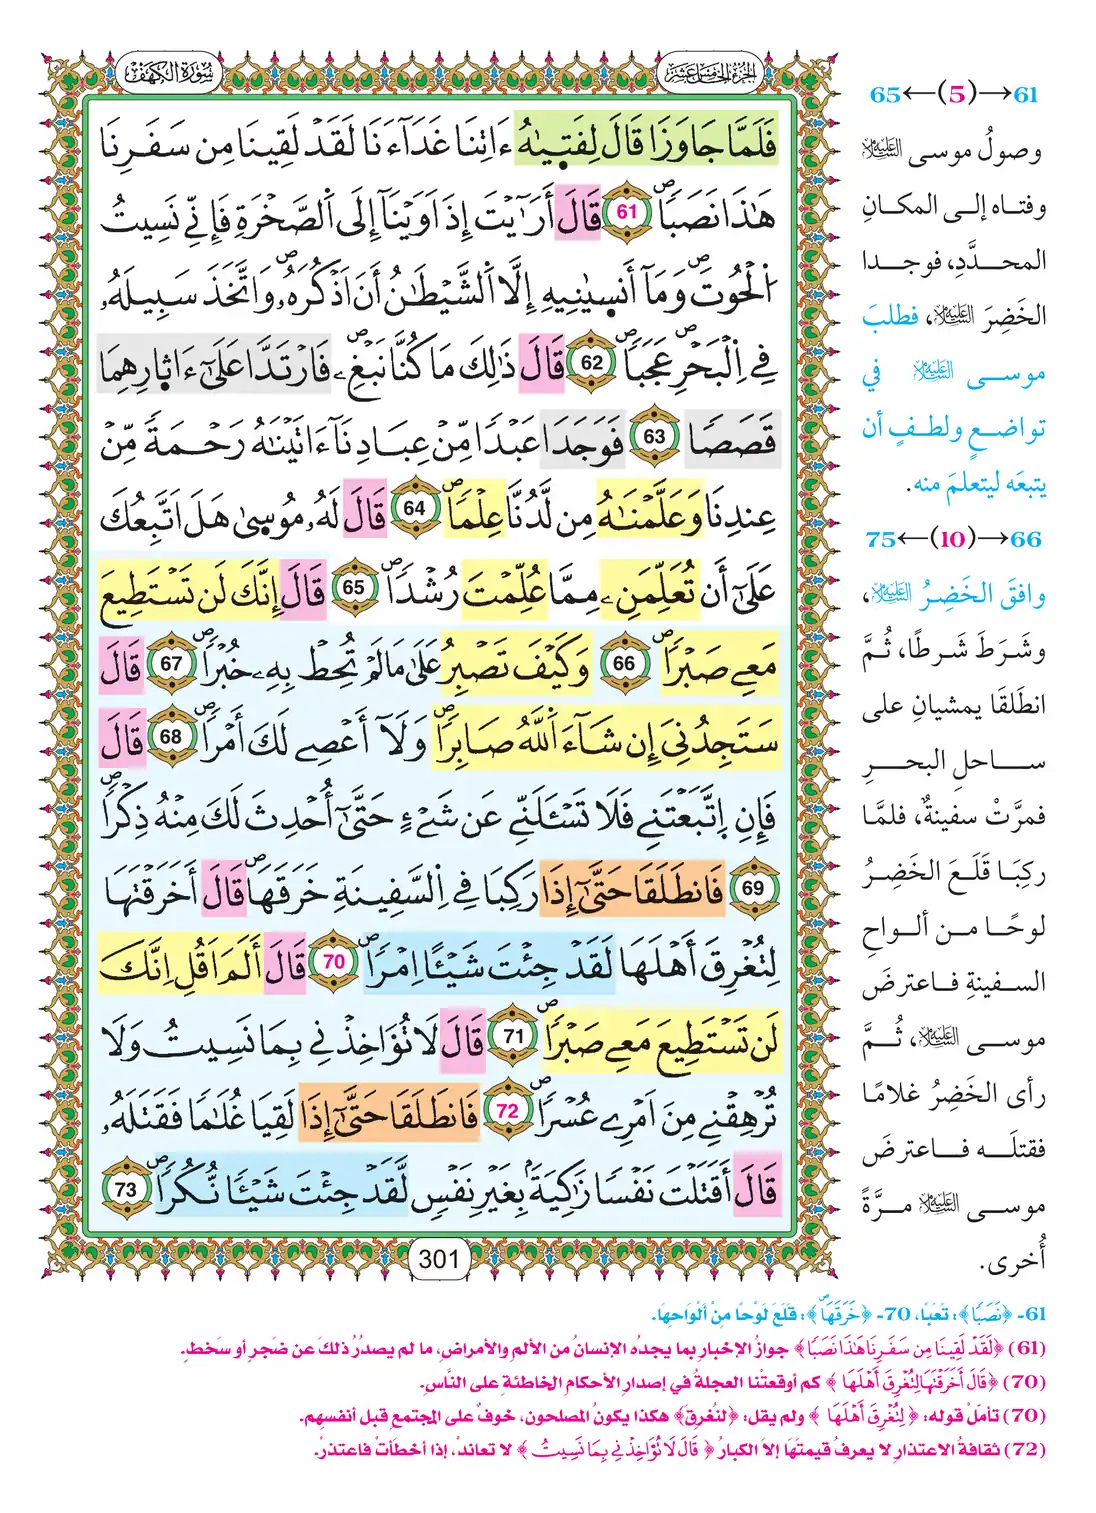 الجزء الخامس عشر
سورة الكهف
فَلَمَّا جَاوَزَا قَالَ لِفَتَىٰهُ ءَاتِنَا غَدَآءَنَا لَقَدْ لَقِينَا مِن سَفَرِنَا
هَٰذَا نَصَبًا 61 قَالَ أَرَٰيْتَ إِذَ اَوَيْنَآ إِلَى اَ۬لصَّخْرَةِ فَإِنِّے نَسِيتُ
اُ۬لْحُوتَ وَمَآ أَنسَىٰنِيهِ إِلَّا اَ۬لشَّيْطَٰنُ أَنَ اَذْكُرَهُۥ وَاتَّخَذَ سَبِيلَهُۥ
فِے اِ۬لْبَحْرِ عَجَبًا 62 قَالَ ذَٰلِكَ مَا كُنَّا نَبْغِۦ فَارْتَدَّا عَلَىٰٓ ءَاثِارِهِمَا
قَصَصًا 63 فَوَجَدَا عَبْدًا مِّنْ عِبَادِنَآ ءَاتَيْنَٰهُ رَحْمَةً مِّنْ
عِندِنَا وَعَلَّمْنَٰهُ مِن لَّدُنَّا عِلْمًا 64 قَالَ لَهُۥ مُوسَىٰ هَلَ اَتَّبِعُكَ
عَلَىٰٓ أَن تُعَلِّمَنِۦ مِمَّا عُلِّمْتَ رُشْدًا 65 قَالَ إِنَّكَ لَن تَسْتَطِيعَ
مَعِے صَبْرًا 66 وَكَيْفَ تَصْبِرُ عَلَىٰ مَا لَمْ تُحِطْ بِهِۦ خُبْرًا 67 قَالَ
سَتَجِدُنِيَ إِن شَآءَ اَ۬للَّهُ صَابِرًا وَلَآ أَعْصِے لَكَ أَمْرًا 68 قَالَ
فَإِنِ اِ۪تَّبَعْتَنِے فَلَا تَسْـَٔلَنِّے عَن شَےْءٍ حَتَّىٰٓ أُحْدِثَ لَكَ مِنْهُ ذِكْرًا
69 فَانطَلَقَا حَتَّىٰٓ إِذَا رَكِبَا فِے اِ۬لسَّفِينَةِ خَرَقَهَا قَالَ أَخَرَقْتَهَا
لِتُغْرِقَ أَهْلَهَا لَقَدْ جِئْتَ شَيْـًٔا اِمْرًا 70 قَالَ أَلَمَ اَقُلِ اِنَّكَ
لَن تَسْتَطِيعَ مَعِے صَبْرًا 71 قَالَ لَا تُؤَاخِذْنِے بِمَا نَسِيتُ وَلَا
تُرْهِقْنِے مِنَ اَمْرِے عُسْرًا 72 فَانطَلَقَا حَتَّىٰٓ إِذَا لَقِيَا غُلَٰمًا فَقَتَلَهُۥ
قَالَ أَقَتَلْتَ نَفْسًا زَٰكِيَةَۢ بِغَيْرِ نَفْسٍ لَّقَدْ جِئْتَ شَيْـًٔا نُّكُرًا 73
301
61→(5)←65
وصولُ موسى عليه السلام
وفتاه إلى المكانِ
المحدَّدِ، فوجدا
الخَضِرَ عليه السلام، فطلبَ
موسى عليه السلام في
تواضعٍ ولطفٍ أن
يتبعَه ليتعلمَ منه.
66→(10)←75
وافقَ الخَضِرُ عليه السلام،
وشَرَطَ شَرطًا، ثُمَّ
انطَلَقَا يمشيانِ على
ساحلِ البحرِ
فمرَّتْ سفينةٌ، فلمَّا
ركِبَا قَلَعَ الخَضِرُ
لوحًا من ألواحِ
السفينةِ فاعترضَ
موسى عليه السلام، ثُمَّ
رأى الخَضِرُ غلامًا
فقتلَه فاعترضَ
موسى عليه السلام مرَّةً
أُخرى.
61- ﴿نَصَبًا﴾: تَعَبًا، 70- ﴿خَرَقَهَا﴾: قَلَعَ لَوْحًا مِنْ أَلْوَاحِهَا.
(61) ﴿لَقَدْ لَقِينَا مِن سَفَرِنَا هَٰذَا نَصَبًا﴾ جوازُ الإخبارِ بما يجدُه الإنسانُ من الألمِ والأمراضِ، ما لم يصدُرْ ذلكَ عن ضجرٍ أو سَخطٍ.
(70) ﴿قَالَ أَخَرَقْتَهَا لِتُغْرِقَ أَهْلَهَا﴾ كم أوقعتْنا العجلةُ في إصدارِ الأحكامِ الخاطئةِ على النَّاسِ.
(70) تأمّلْ قوله: ﴿لِتُغْرِقَ أَهْلَهَا﴾ ولم يقل: ﴿لتغرقَ﴾ هكذا يكونُ المصلحون، خوفٌ على المجتمعِ قبل أنفسِهم.
(72) ثقافةُ الاعتذارِ لا يعرفُ قيمتَهَا إلا الكبارُ ﴿قَالَ لَا تُؤَاخِذْنِے بِمَا نَسِيتُ﴾ لا تعاندْ، إذا أخطأتَ فاعتذرْ.